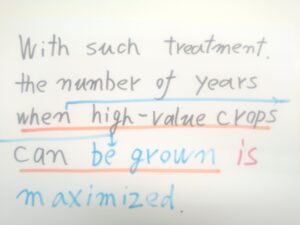 With such treatment.
the number of years
when high-value crops
can be grown is
maximized.